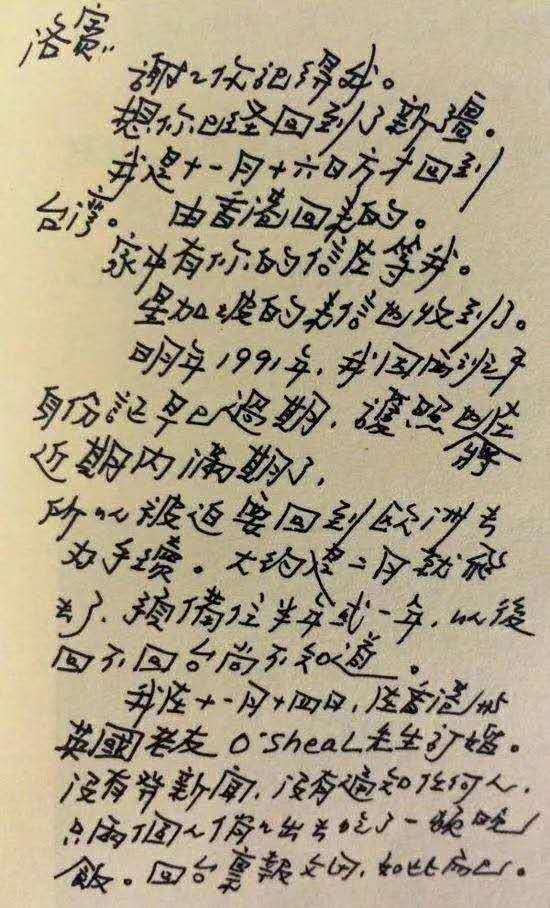 洛賓:
謝々你記得我。
想你已經回到了新疆。
我是十一月十六日方才回到
台灣。 由香港回美的。
家中有你的信在等我。
星加坡的来信也收到了。
明年1991年,我因西班牙
身份証早已過期,護照也在
將
近期内滿期了,
所以被迫要回到欧洲去
办手續。大约一、二月就飛
去了,預備住半年或一年,以後
回不回台尚不知道。
我在十一月十四日,在香港與
英國老友 O'SheaL先生訂婚。
沒有發新闻,沒有通知任何人,
只兩個人悄々出去吃了一頓晚
飯。回台稟報父母,如此而已。